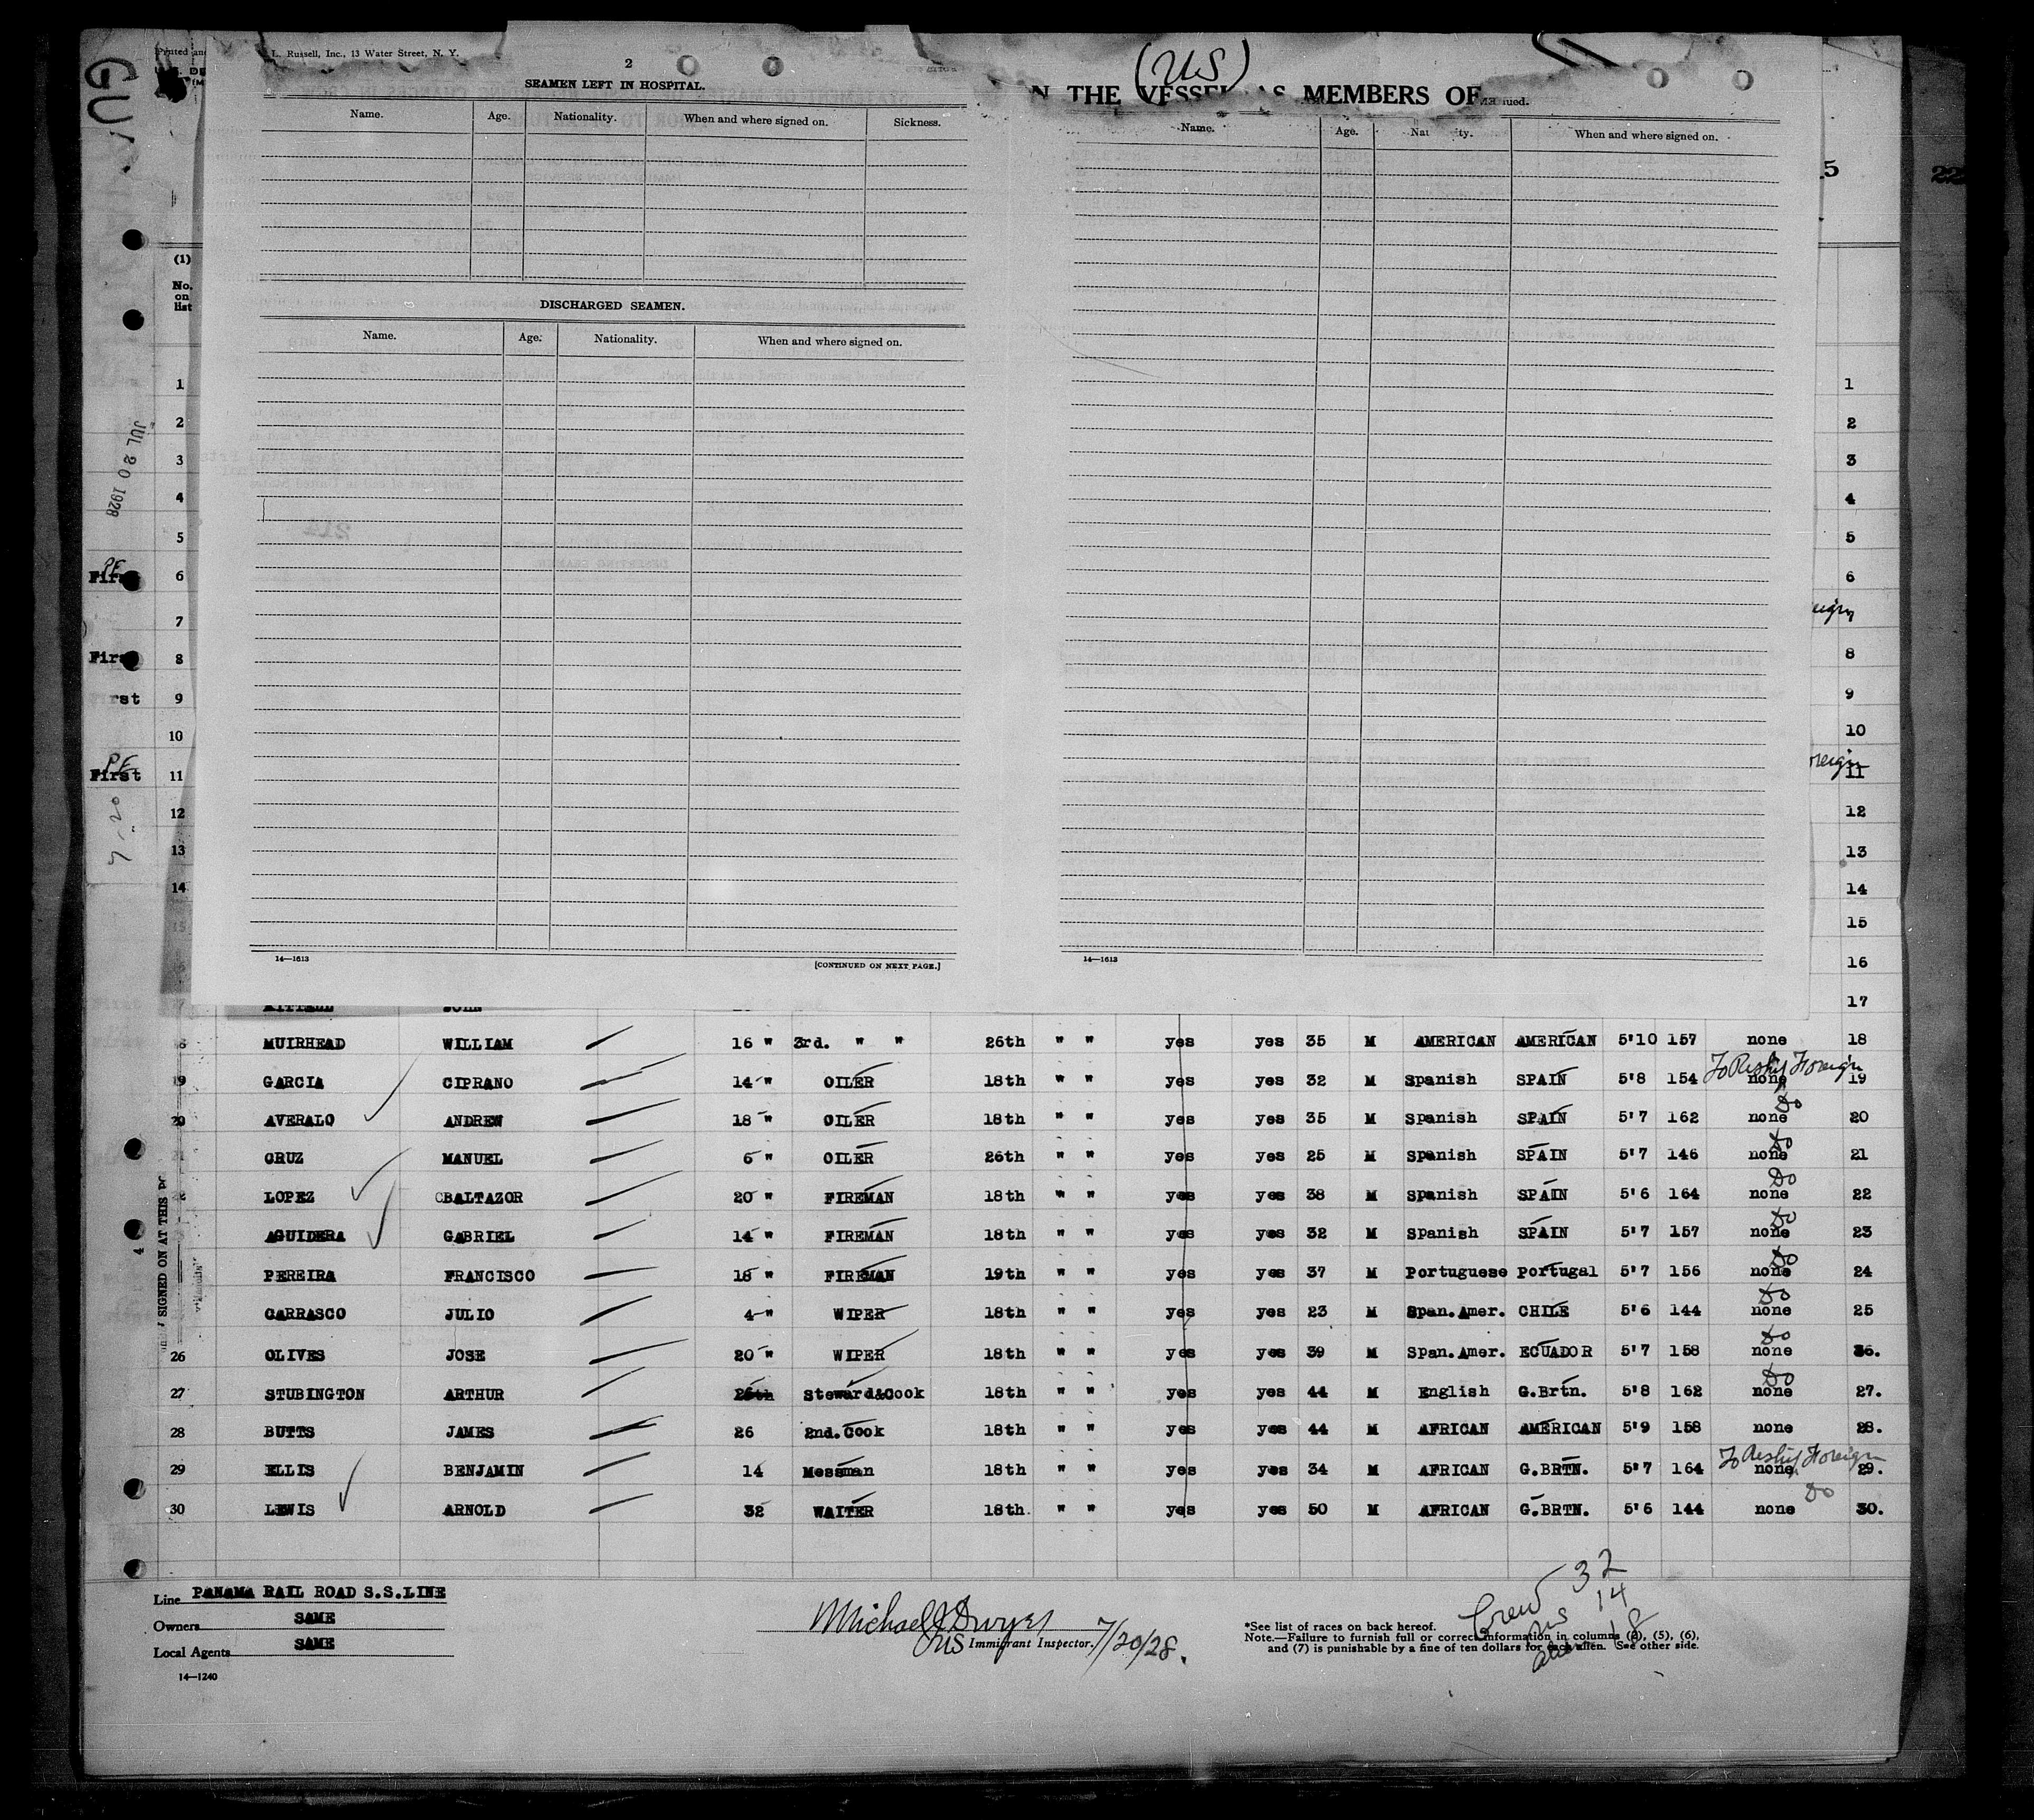 L. Russell, Inc., 13 Water Street, N. Y.
(US)
2
SEAMEN LEFT IN HOSPITAL.
N THE VESSEL AS MEMBERS OF
Name. Age. Nationality. When and where signed on. Sickness.
Name. Age. Nat ty. When and where signed on.
5
22
GU
(1)
No. on list
DISCHARGED SEAMEN.
Name. Age. Nationality. When and where signed on.
1 1
2 2
JUL 20 1928
3 3
4 4
5 5
PF
First 6 6
7 eign 7
First 8 8
rst 9 9
10 10
PF
First 11 oreign 11
12 12
7-20
13 13
14 14
15 15
14—1613 [CONTINUED ON NEXT PAGE.] 14—1613
16
JOHN 17
MUIRHEAD WILLIAM 16 " 3rd. " " 26th " " yes yes 35 M AMERICAN AMERICAN 5'10 157 none 18
19 GARCIA CIPRANO 14 " OILER 18th " " yes yes 32 M Spanish SPAIN 5'8 154 To Reship Foreign none 19
20 AVERALO ANDREW 18 " OILER 18th " " yes yes 35 M Spanish SPAIN 5'7 162 Do none 20
CRUZ MANUEL 6 " OILER 26th " " yes yes 25 M Spanish SPAIN 5'7 146 Do none 21
LOPEZ CBALTAZOR 20 " FIREMAN 18th " " yes yes 38 M Spanish SPAIN 5'6 164 Do none 22
AGUIDERA GABRIEL 14 " FIREMAN 18th " " yes yes 32 M Spanish SPAIN 5'7 157 Do none 23
PEREIRA FRANCISCO 18 " FIREMAN 19th " " yes yes 37 M Portuguese Portugal 5'7 156 Do none 24
CARRASCO JULIO 4 " WIPER 18th " " yes yes 23 M Span.Amer. CHILE 5'6 144 Do none 25
26 OLIVES JOSE 20 " WIPER 18th " " yes yes 39 M Span.Amer. ECUADOR 5'7 158 Do none 26.
27 STUBINGTON ARTHUR 26th Steward&Cook 18th " " yes yes 44 M English G.Brtn. 5'8 162 Do none 27.
28 BUTTS JAMES 26 2nd.Cook 18th " " yes yes 44 M AFRICAN AMERICAN 5'9 158 none 28.
29 ELLIS BENJAMIN 14 Messman 18th " " yes yes 34 M AFRICAN G.BRTN. 5'7 164 To Reship Foreign none 29.
30 LEWIS ARNOLD 32 WAITER 18th. " " yes yes 50 M AFRICAN G.BRTN. 5'6 144 Do none 30.
SIGNED ON AT THIS PO
4
Line PANAMA RAIL ROAD S.S.LINE
Owners SAME
Local Agents SAME
14—1240
Michael J Dwyer
US Immigrant Inspector. 7/20/28.
Crew 32
US 14
alien 18
*See list of races on back hereof.
Note.—Failure to furnish full or correct information in columns (2), (5), (6),
and (7) is punishable by a fine of ten dollars for each alien. See other side.